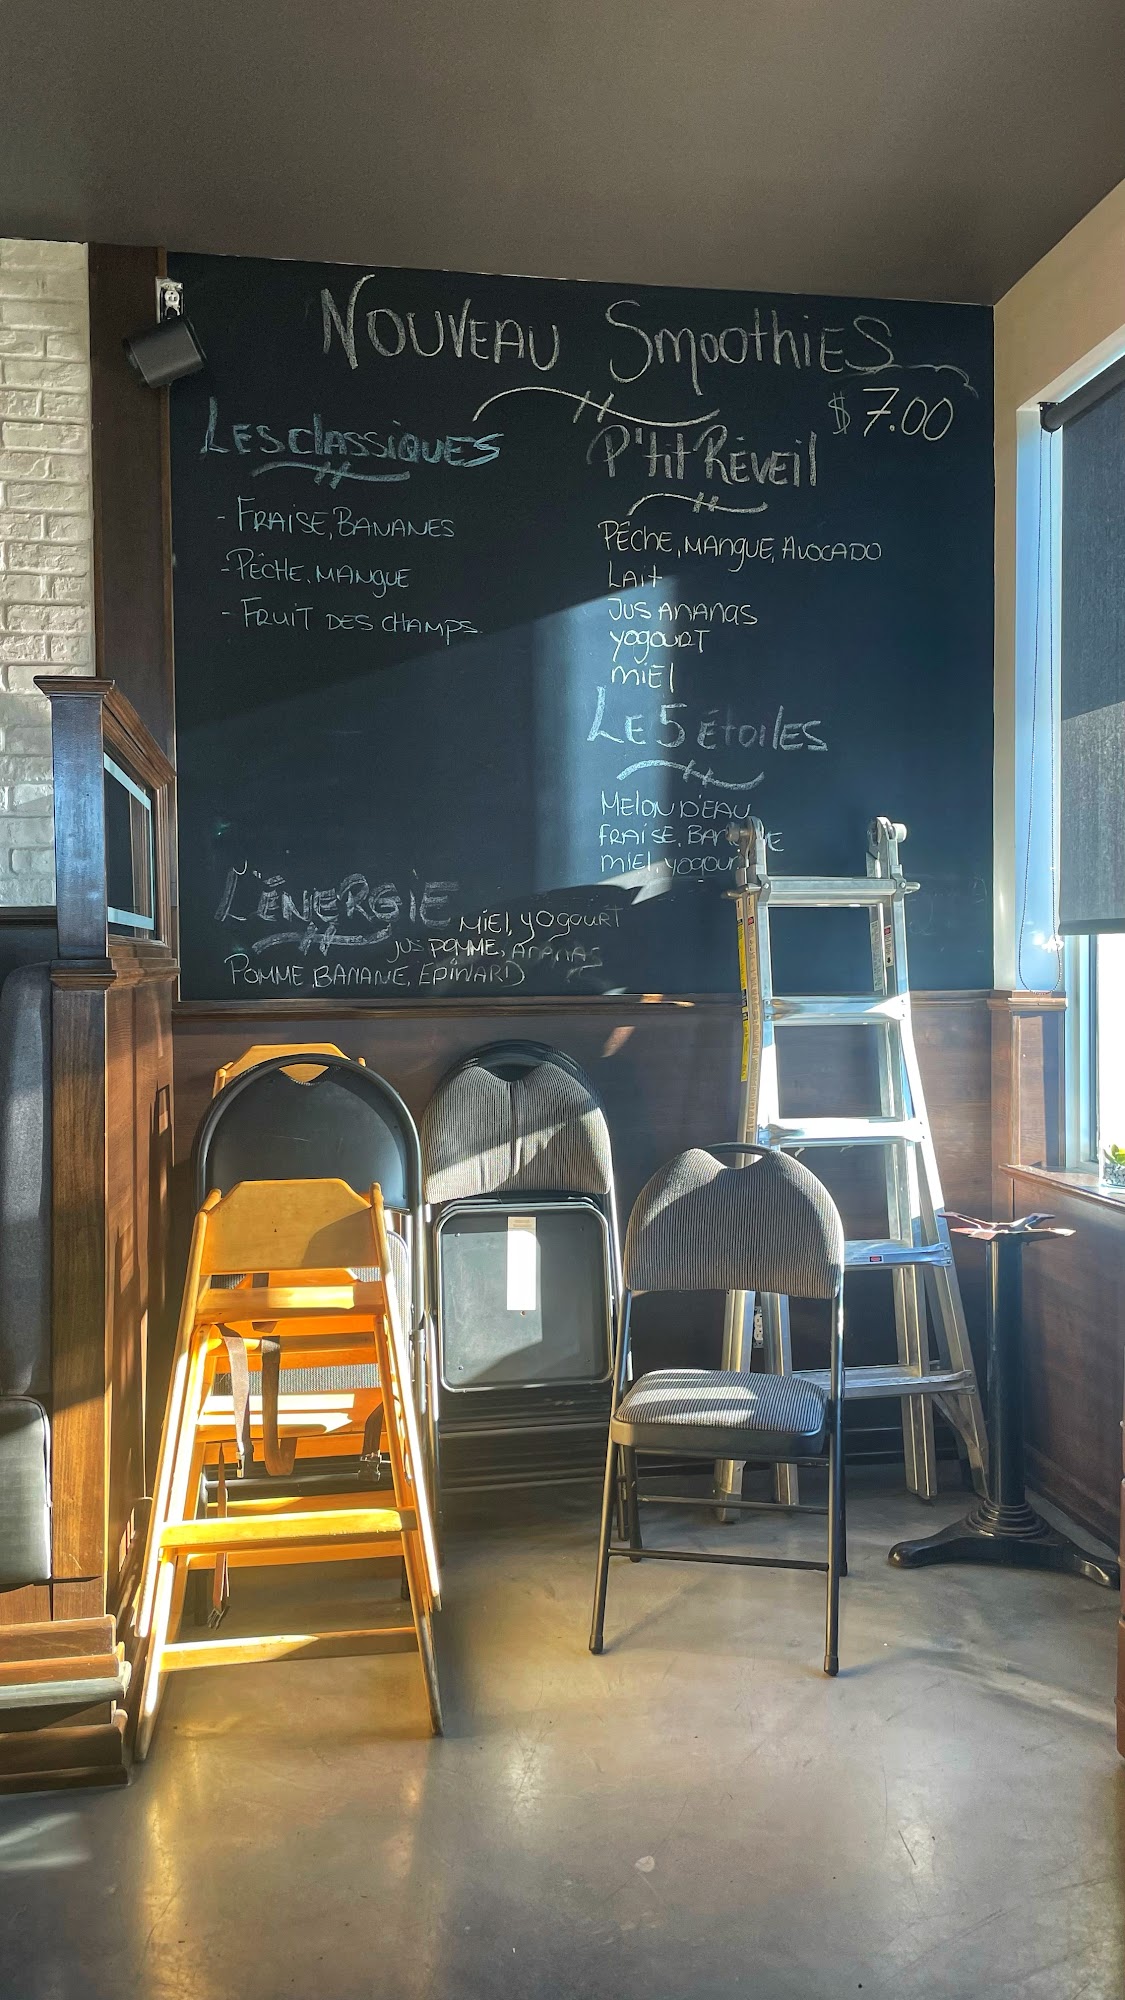 NOUVEAU SmoothiES
$7.00
LES classiQUES
- FRAISE, BANANES
- PÊCHE, MANGUE
- FRUIT DES CHAMPS.
P'tit RÉVEIL
PÊCHE, MANGUE, AVOCADO
Lait
JUS ANANAS
yogourt
miEl
LE 5 ÉtoilES
MELON D'EAU
FRAISE,
miEl,
L'ÉNERGiE
MiEl, yogourt
jus POMME, ANANAS
POMME, BANANE, EPINARD